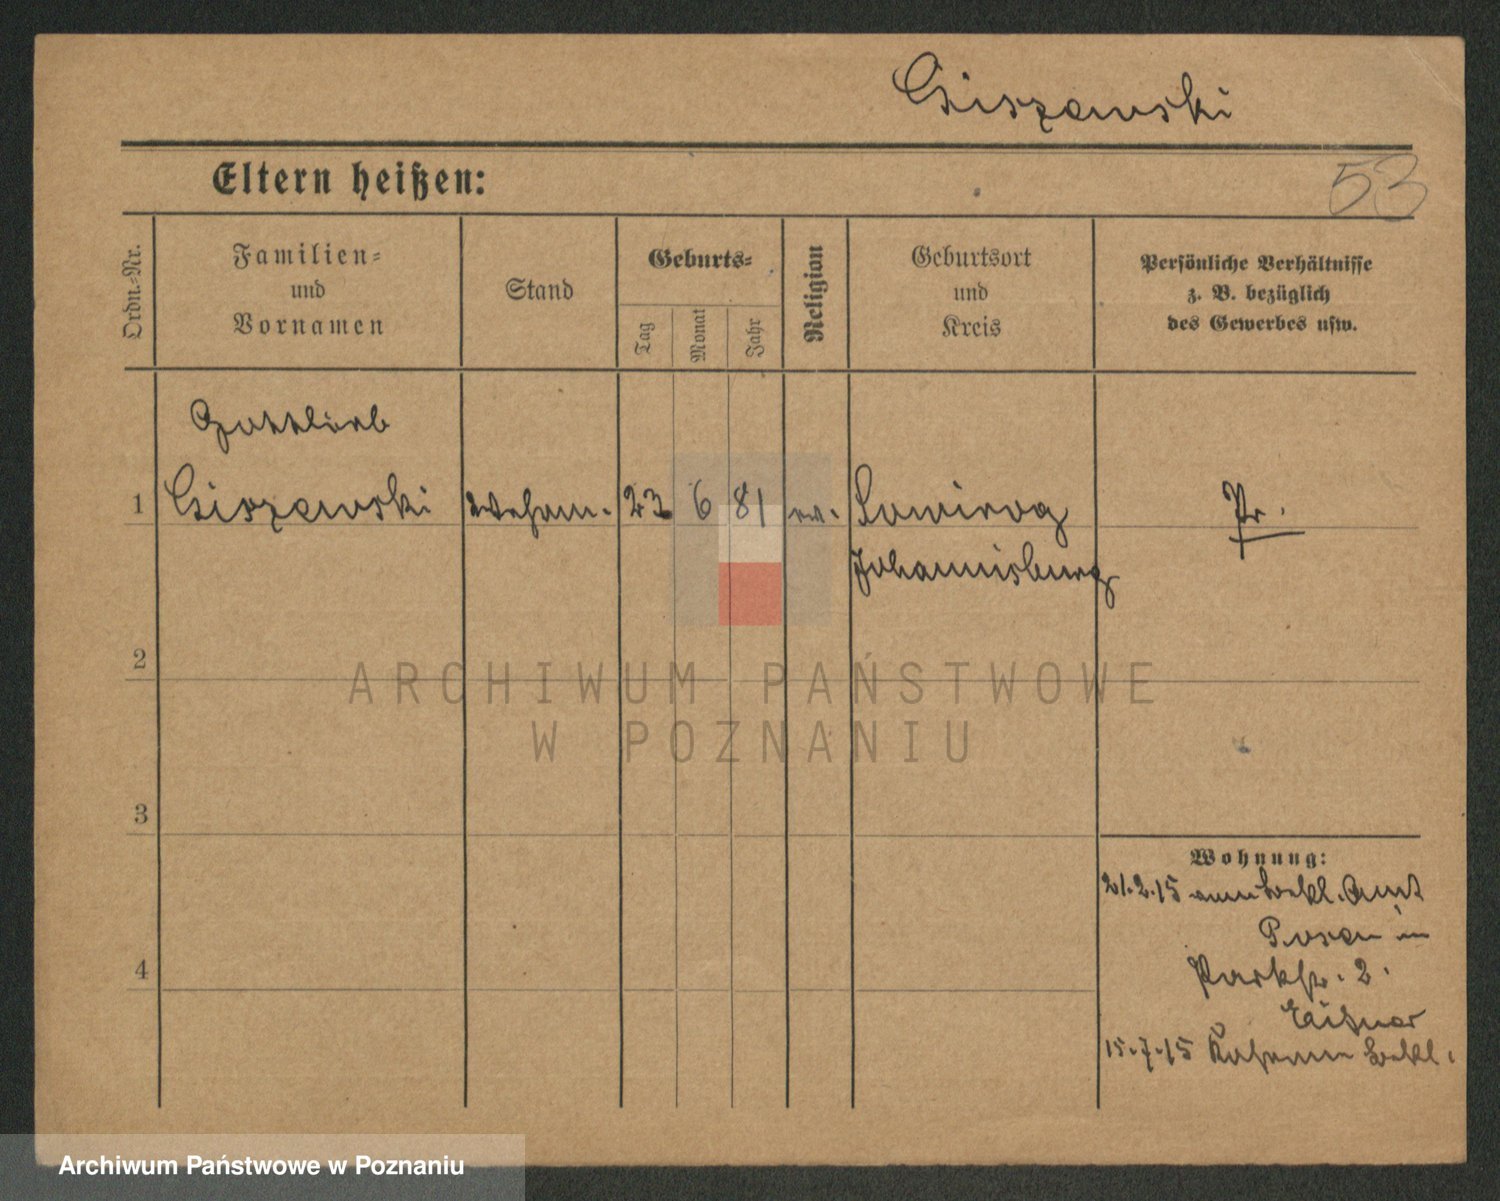 Ciszewski
Eltern heißen:
53
Ordn.-Nr.
Familien-
und
Vornamen
Stand
Geburts-
Tag
Monat
Jahr
Religion
Geburtsort
und
Kreis
Persönliche Verhältnisse
z. B. bezüglich
des Gewerbes usw.
Gottlieb
1 Ciszewski Wehrm. 23 6 81 ev. Sowirog Pr.
Johannisburg
2
ARCHIWUM PAŃSTWOWE
W POZNANIU
3
Wohnung:
21.2.15 Bekl. Amt
Posen
Parkstr. 2.
4
15.7.15 Bekl.
Archiwum Państwowe w Poznaniu